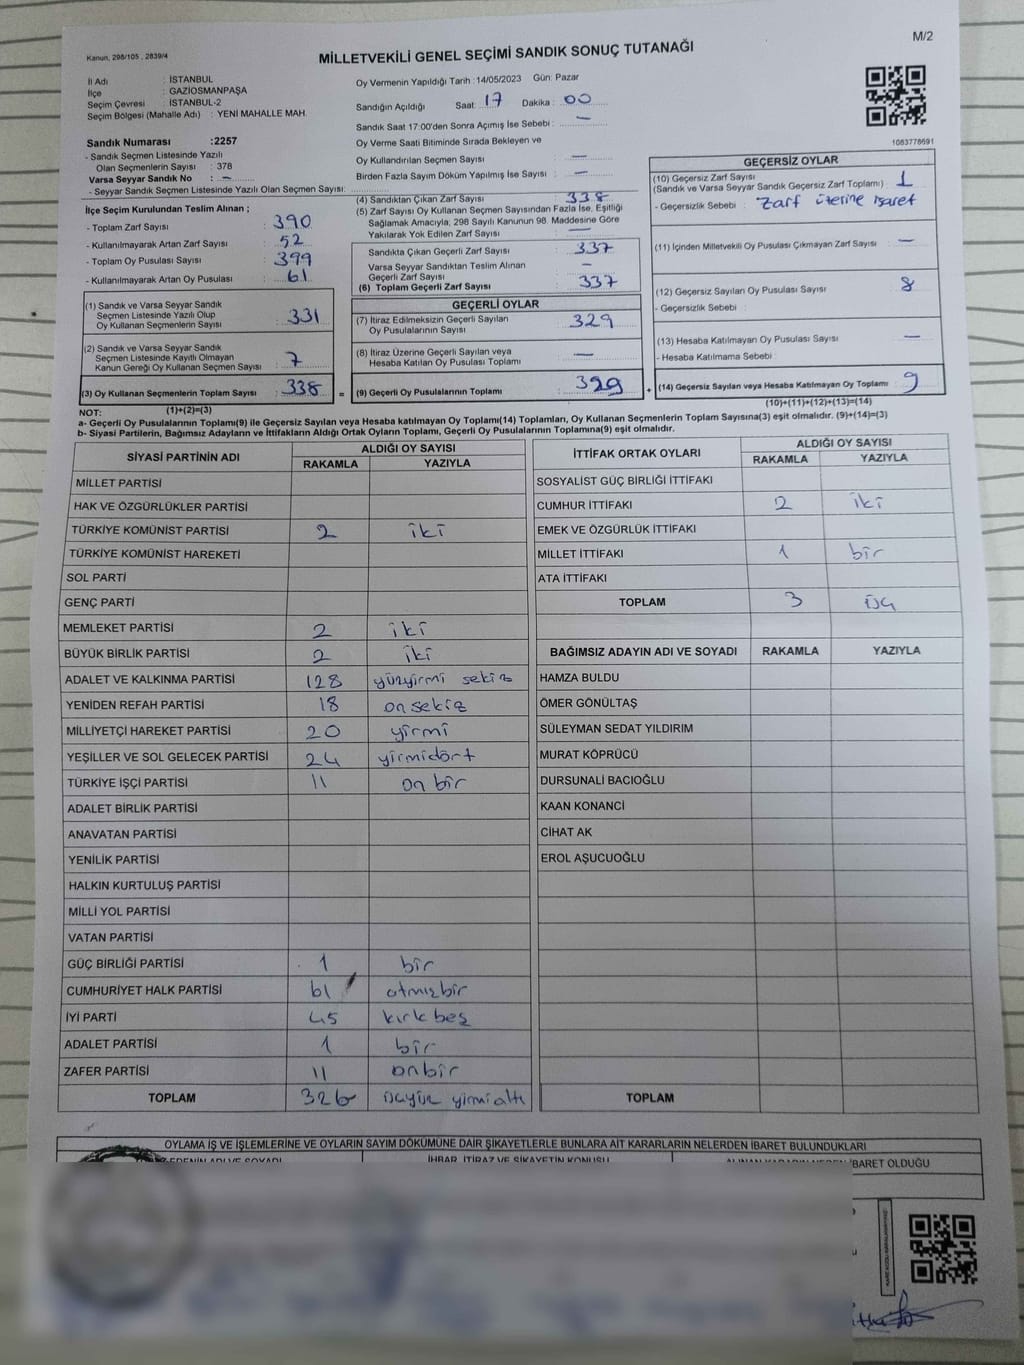 Kanun, 298/105 , 2839/4
MİLLETVEKİLİ GENEL SEÇİMİ SANDIK SONUÇ TUTANAĞI
M/2
İl Adı : İSTANBUL
İlçe : GAZİOSMANPAŞA
Seçim Çevresi : İSTANBUL-2
Seçim Bölgesi (Mahalle Adı) : YENİ MAHALLE MAH.
Sandık Numarası :2257
- Sandık Seçmen Listesinde Yazılı
Olan Seçmenlerin Sayısı : 378
Varsa Seyyar Sandık No : -
- Seyyar Sandık Seçmen Listesinde Yazılı Olan Seçmen Sayısı:
Oy Vermenin Yapıldığı Tarih : 14/05/2023 Gün: Pazar
Sandığın Açıldığı Saat: 17 Dakika : 00
Sandık Saat 17:00'den Sonra Açımış İse Sebebi : -
Oy Verme Saati Bitiminde Sırada Bekleyen ve
Oy Kullandırılan Seçmen Sayısı -
Birden Fazla Sayım Döküm Yapılmış İse Sayısı : -
1083778691
İlçe Seçim Kurulundan Teslim Alınan ;
- Toplam Zarf Sayısı : 390
- Kullanılmayarak Artan Zarf Sayısı : 52
- Toplam Oy Pusulası Sayısı : 399
- Kullanılmayarak Artan Oy Pusulası : 61
(1) Sandık ve Varsa Seyyar Sandık
Seçmen Listesinde Yazılı Olup
Oy Kullanan Seçmenlerin Sayısı : 331
(2) Sandık ve Varsa Seyyar Sandık
Seçmen Listesinde Kayıtlı Olmayan
Kanun Gereği Oy Kullanan Seçmen Sayısı : 7
(3) Oy Kullanan Seçmenlerin Toplam Sayısı : 338
(1)+(2)=(3)
(4) Sandıktan Çıkan Zarf Sayısı : 338
(5) Zarf Sayısı Oy Kullanan Seçmen Sayısından Fazla İse, Eşitliği
Sağlamak Amacıyla, 298 Sayılı Kanunun 98. Maddesine Göre
Yakılarak Yok Edilen Zarf Sayısı : -
Sandıkta Çıkan Geçerli Zarf Sayısı : 337
Varsa Seyyar Sandıktan Teslim Alınan
Geçerli Zarf Sayısı : -
(6) Toplam Geçerli Zarf Sayısı : 337
GEÇERLİ OYLAR
(7) İtiraz Edilmeksizin Geçerli Sayılan
Oy Pusulalarının Sayısı : 329
(8) İtiraz Üzerine Geçerli Sayılan veya
Hesaba Katılan Oy Pusulası Toplamı : -
= (9) Geçerli Oy Pusulalarının Toplamı : 329 +
GEÇERSİZ OYLAR
(10) Geçersiz Zarf Sayısı
(Sandık ve Varsa Seyyar Sandık Geçersiz Zarf Toplamı) : 1
- Geçersizlik Sebebi : Zarf üzerine işaret
(11) İçinden Milletvekili Oy Pusulası Çıkmayan Zarf Sayısı : -
(12) Geçersiz Sayılan Oy Pusulası Sayısı : 8
- Geçersizlik Sebebi :
(13) Hesaba Katılmayan Oy Pusulası Sayısı : -
- Hesaba Katılmama Sebebi :
(14) Geçersiz Sayılan veya Hesaba Katılmayan Oy Toplamı : 9
(10)+(11)+(12)+(13)=(14)
NOT:
a- Geçerli Oy Pusulalarının Toplamı(9) ile Geçersiz Sayılan veya Hesaba katılmayan Oy Toplamı(14) Toplamları, Oy Kullanan Seçmenlerin Toplam Sayısına(3) eşit olmalıdır. (9)+(14)=(3)
b- Siyasi Partilerin, Bağımsız Adayların ve İttifakların Aldığı Ortak Oyların Toplamı, Geçerli Oy Pusulalarının Toplamına(9) eşit olmalıdır.
SİYASİ PARTİNİN ADI ALDIĞI OY SAYISI
RAKAMLA YAZIYLA
MİLLET PARTİSİ
HAK VE ÖZGÜRLÜKLER PARTİSİ
TÜRKİYE KOMÜNİST PARTİSİ 2 iki
TÜRKİYE KOMÜNİST HAREKETİ
SOL PARTİ
GENÇ PARTİ
MEMLEKET PARTİSİ 2 iki
BÜYÜK BİRLİK PARTİSİ 2 iki
ADALET VE KALKINMA PARTİSİ 128 yüzyirmi sekiz
YENİDEN REFAH PARTİSİ 18 onsekiz
MİLLİYETÇİ HAREKET PARTİSİ 20 yirmi
YEŞİLLER VE SOL GELECEK PARTİSİ 24 yirmidört
TÜRKİYE İŞÇİ PARTİSİ 11 on bir
ADALET BİRLİK PARTİSİ
ANAVATAN PARTİSİ
YENİLİK PARTİSİ
HALKIN KURTULUŞ PARTİSİ
MİLLİ YOL PARTİSİ
VATAN PARTİSİ
GÜÇ BİRLİĞİ PARTİSİ 1 bir
CUMHURİYET HALK PARTİSİ 61 atmışbir
İYİ PARTİ 45 kırkbeş
ADALET PARTİSİ 1 bir
ZAFER PARTİSİ 11 onbir
TOPLAM 326 üçyüz yirmialtı
İTTİFAK ORTAK OYLARI ALDIĞI OY SAYISI
RAKAMLA YAZIYLA
SOSYALİST GÜÇ BİRLİĞİ İTTİFAKI
CUMHUR İTTİFAKI 2 iki
EMEK VE ÖZGÜRLÜK İTTİFAKI
MİLLET İTTİFAKI 1 bir
ATA İTTİFAKI
TOPLAM 3 üç
BAĞIMSIZ ADAYIN ADI VE SOYADI RAKAMLA YAZIYLA
HAMZA BULDU
ÖMER GÖNÜLTAŞ
SÜLEYMAN SEDAT YILDIRIM
MURAT KÖPRÜCÜ
DURSUNALİ BACIOĞLU
KAAN KONANCİ
CİHAT AK
EROL AŞUCUOĞLU
TOPLAM
OYLAMA İŞ VE İŞLEMLERİNE VE OYLARIN SAYIM DÖKÜMÜNE DAİR ŞİKAYETLERLE BUNLARA AİT KARARLARIN NELERDEN İBARET BULUNDUKLARI
EDENİN ADI VE SOYADI İHBAR, İTİRAZ VE ŞİKAYETİN KONUSU ALINAN KARARIN NEDEN İBARET OLDUĞU